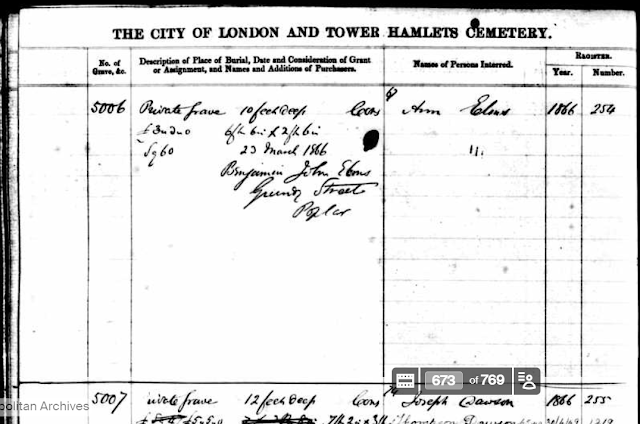 THE CITY OF LONDON AND TOWER HAMLETS CEMETERY.
No. of Grave, &c.
Description of Place of Burial, Date and Consideration of Grant
or Assignment, and Names and Additions of Purchasers.
Names of Persons Interred.
REGISTER.
Year. Number.
5006 Private Grave 10 feet deep Ann 1866 254
£3 " 3 " 0 6ft 6in x 2ft 6in
Sq 60 23 March 1866
Benjamin John
Grundy Street
Poplar
673 of 769
5007 Private Grave 12 feet deep Joseph Dawson 1866 255
politan Archives